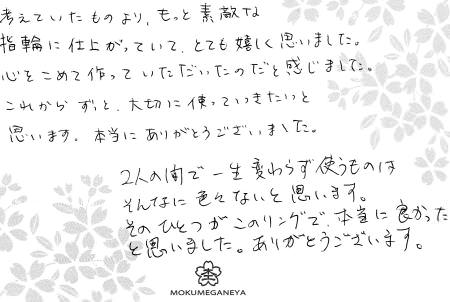 考えていたものより、もっと素敵な
指輪に仕上がっていて、とても嬉しく思いました。
心をこめて作っていただいたのだと感じました。
これからずっと、大切に使っていきたいと
思います。本当にありがとうございました。
2人の間で一生変わらず使うものは
そんなに色々ないと思います。
そのひとつがこのリングで、本当に良かった
と思いました。ありがとうございます。
MOKUMEGANEYA